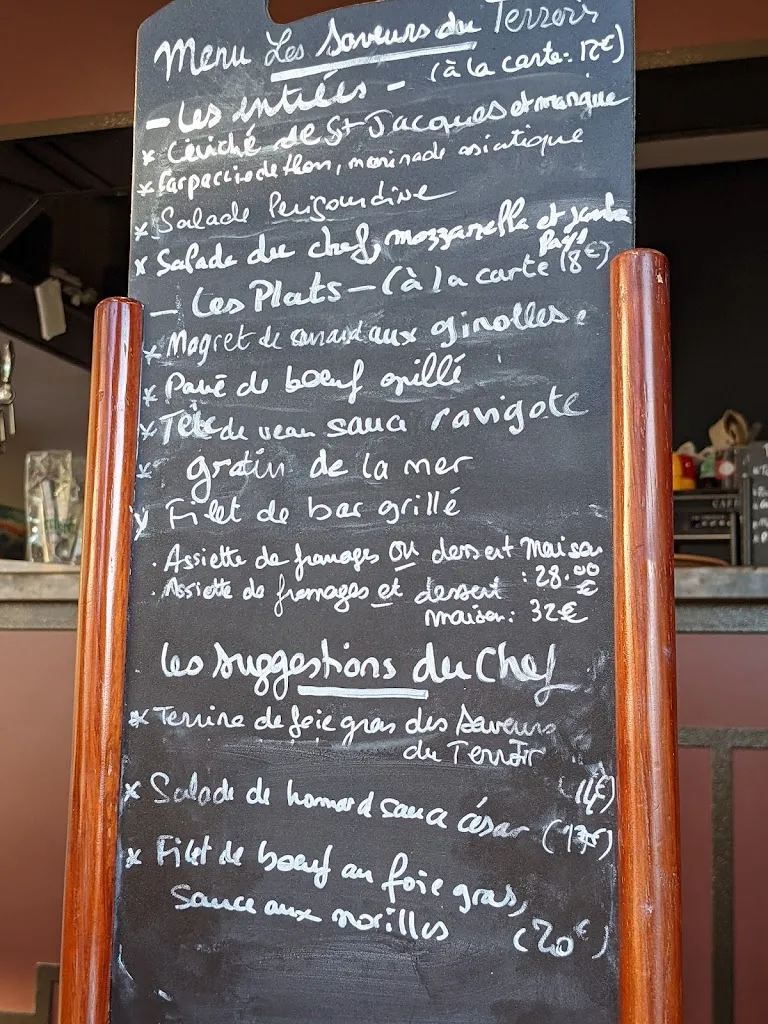 Menu Les Saveurs du Terroir
- Les entrées - (à la carte: 12€)
* Céviché de St Jacques et mangue
* Carpaccio de thon, marinade asiatique
* Salade Périgourdine
* Salade du chef, mozzarella et jambon
Pays
- Les Plats - (à la carte 18€)
* Magret de canard aux girolles.
* Pavé de boeuf grillé
* Tête de veau sauce ravigote
* gratin de la mer
* Filet de bar grillé
. Assiette de fromages ou dessert Maison
: 28.00 €
. Assiette de fromages et dessert
maison: 32€
Les suggestions du Chef
* Terrine de foie gras des Saveurs
du Terroir
(14€)
* Salade de homard sauce césar (17€)
* Filet de boeuf au foie gras,
Sauce aux morilles (20€)